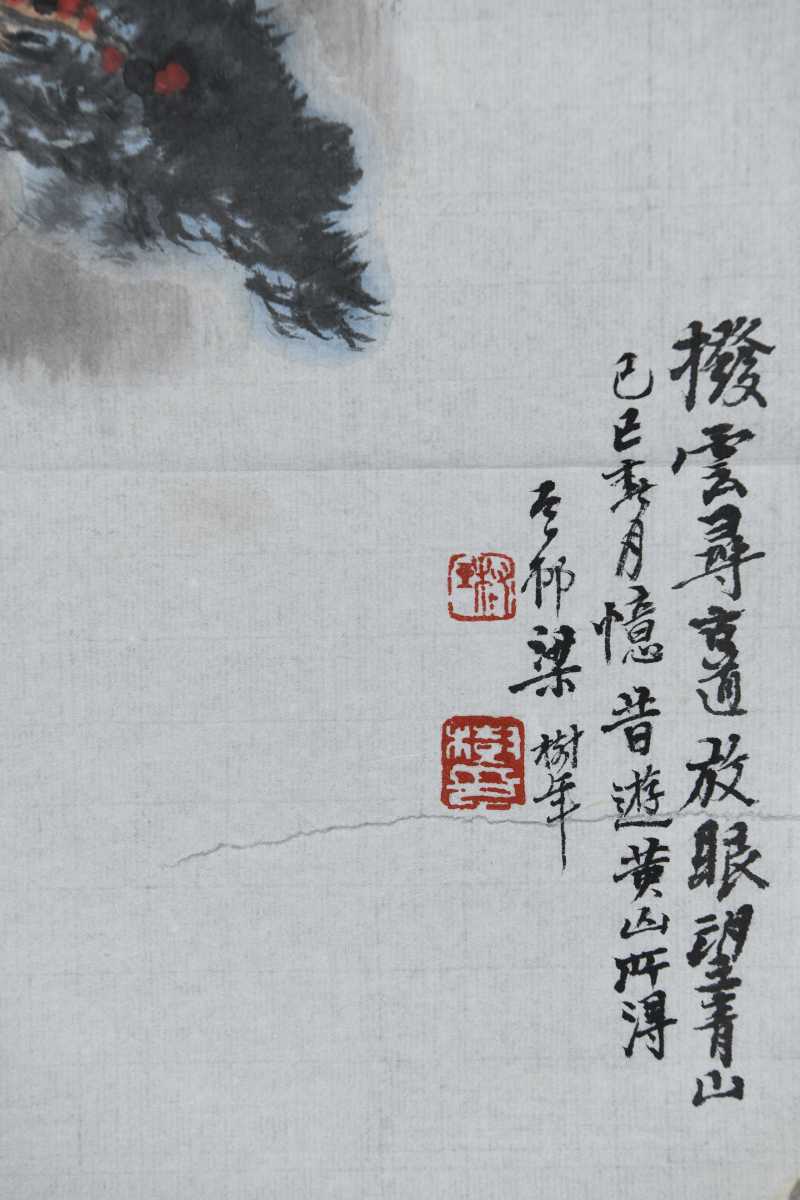 撥雲尋古道放眼望青山
己巳春月憶昔遊黄山所得
邨梁樹年
樹年